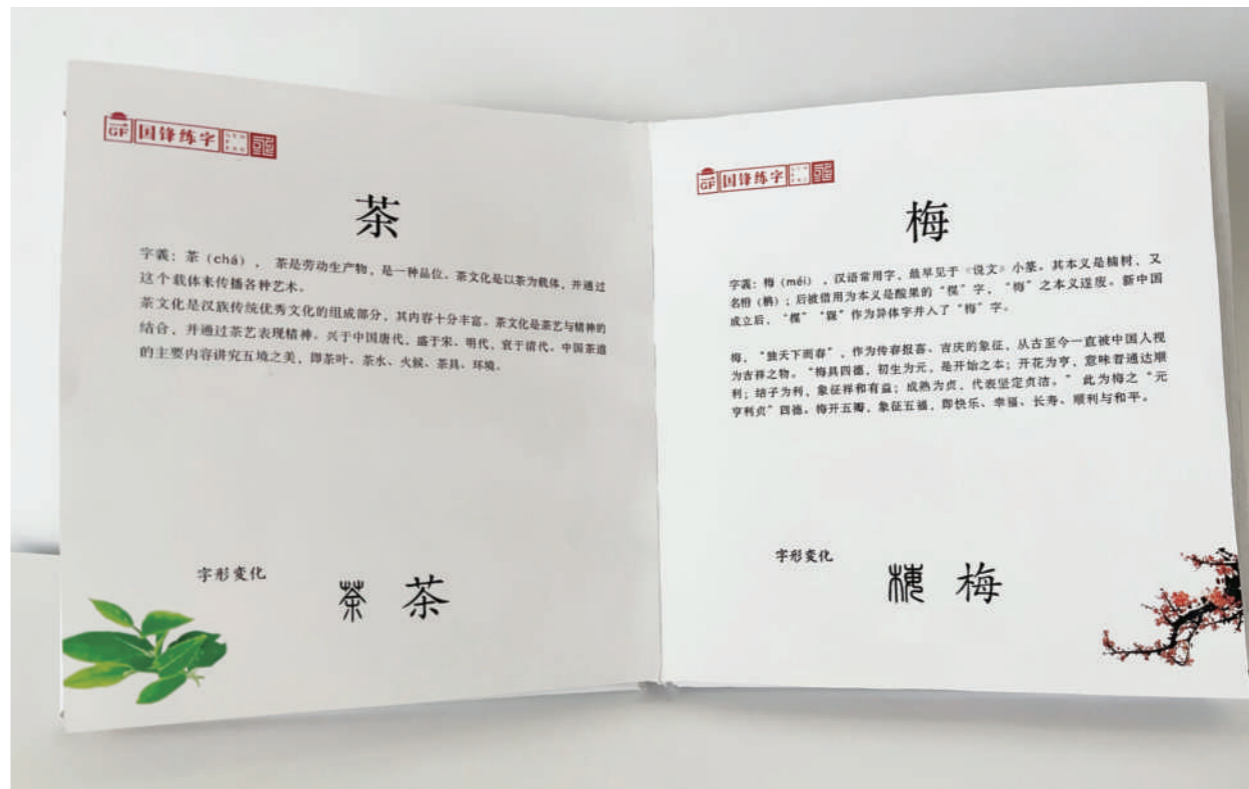 GF 国锋练字
茶
字義：茶（chá），茶是劳动生产物，是一种品位。茶文化是以茶为载体，并通过
这个载体来传播各种艺术。
茶文化是汉族传统优秀文化的组成部分，其内容十分丰富。茶文化是茶艺与精神的
结合，并通过茶艺表现精神。兴于中国唐代，盛于宋、明代，衰于清代。中国茶道
的主要内容讲究五境之美，即茶叶、茶水、火候、茶具、环境。
字形变化
茶 茶
GF 国锋练字
梅
字義：梅（méi），汉语常用字，最早见于《说文》小篆。其本义是楠树，又
名枏（柟）；后被借用为本义是酸果的“楳”字，“梅”之本义遂废。新中国
成立后，“楳”“槑”作为异体字并入了“梅”字。
梅，“独天下而春”，作为传春报喜、吉庆的象征，从古至今一直被中国人视
为吉祥之物。“梅具四德，初生为元，是开始之本；开花为亨，意味着通达顺
利；结子为利，象征祥和有益；成熟为贞，代表坚定贞洁。”此为梅之“元
亨利贞”四德。梅开五瓣，象征五福，即快乐、幸福、长寿、顺利与和平。
字形变化
梅 梅